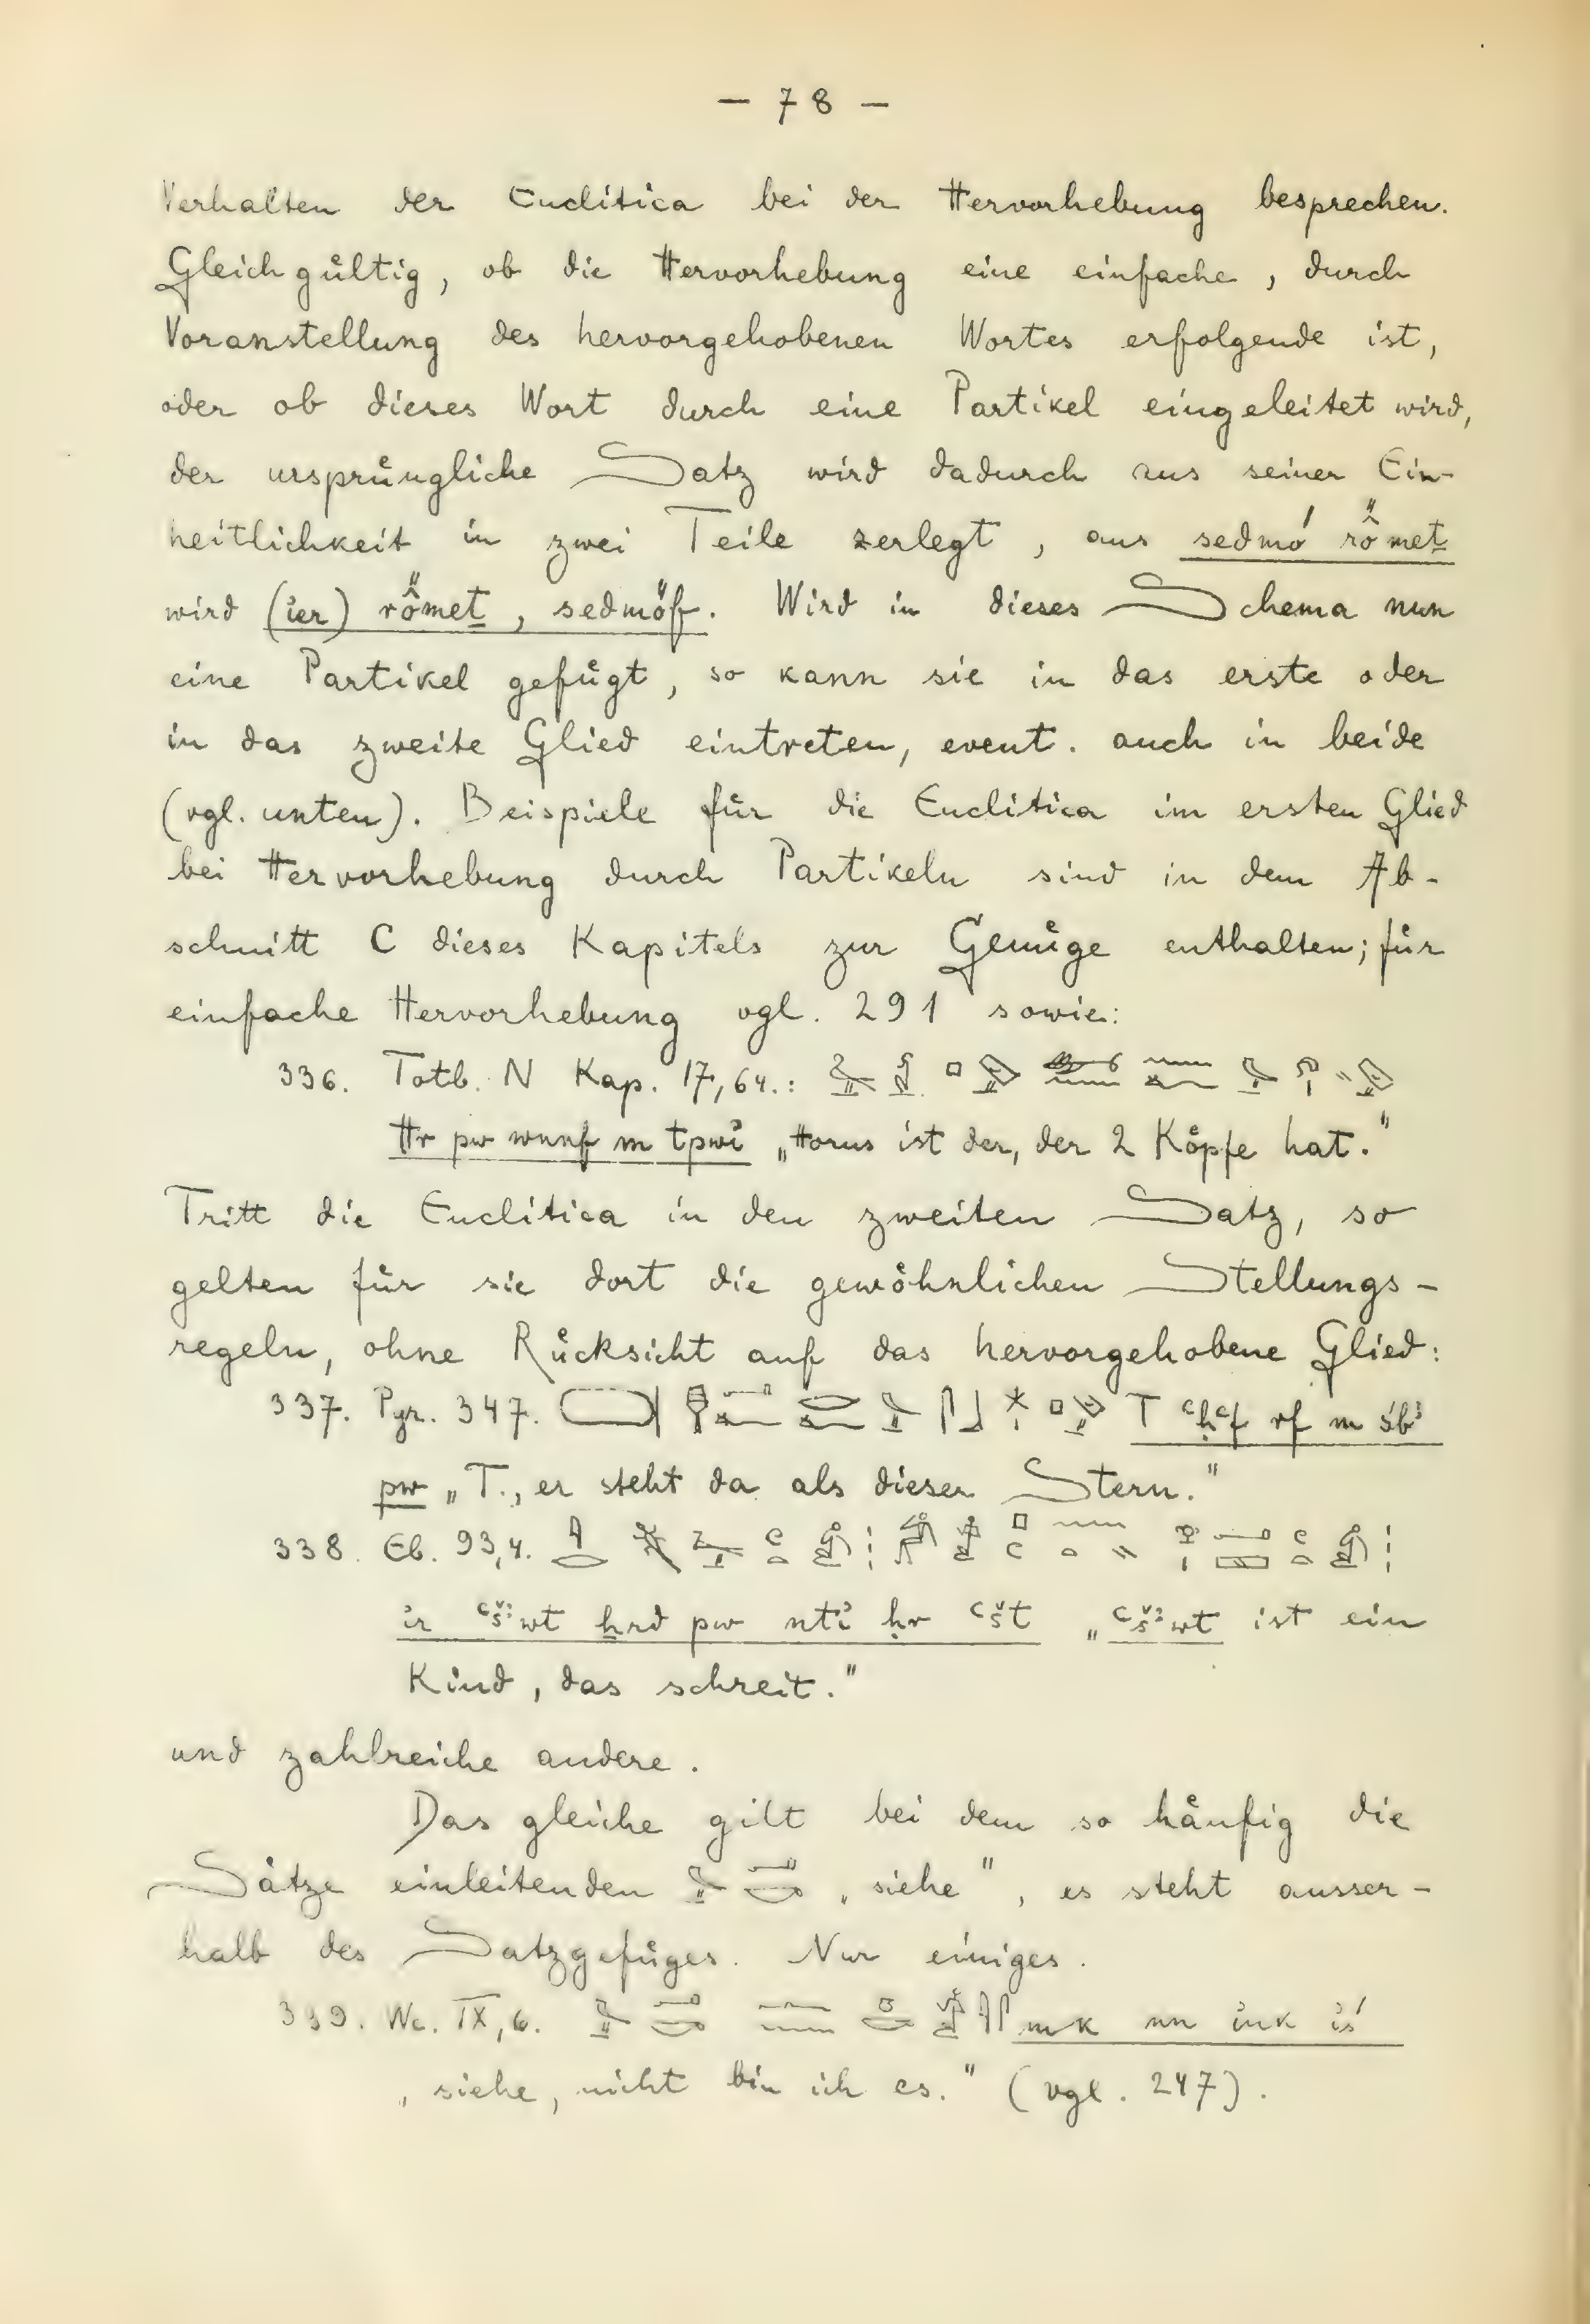 — 78 —
Verhalten der Enclitica bei der Hervorhebung besprechen.
Gleichgültig, ob die Hervorhebung eine einfache, durch
Voranstellung des hervorgehobenen Wortes erfolgende ist,
oder ob dieses Wort durch eine Partikel eingeleitet wird,
der ursprüngliche Satz wird dadurch aus seiner Ein-
heitlichkeit in zwei Teile zerlegt, aus sedmó rômet
wird (ier) rômet, sedmöf. Wird in dieses Schema nun
eine Partikel gefügt, so kann sie in das erste oder
in das zweite Glied eintreten, event. auch in beide
(vgl. unten). Beispiele für die Enclitica im ersten Glied
bei Hervorhebung durch Partikeln sind in dem Ab-
schnitt C dieses Kapitels zur Genüge enthalten; für
einfache Hervorhebung vgl. 291 sowie:
336. Totb. N Kap. 17,64.:
Ḥr pw wnnf m tpwỉ „Horus ist der, der 2 Köpfe hat."
Tritt die Enclitica in den zweiten Satz, so
gelten für sie dort die gewöhnlichen Stellungs-
regeln, ohne Rücksicht auf das hervorgehobene Glied:
337. Pyr. 347. T ꜥḥꜥf rf m śbꜣ
pw „T., er steht da als dieser Stern."
338. Eb. 93,4.
ỉr ꜥšꜣwt ẖrd pw ntỉ ḥr ꜥšt „ꜥšꜣwt ist ein
Kind, das schreit."
und zahlreiche andere.
Das gleiche gilt bei dem so häufig die
Sätze einleitenden „siehe", es steht ausser-
halb des Satzgefüges. Nur einiges.
339. We. IX,6. mk nn ỉnk ỉś
„siehe, nicht bin ich es." (vgl. 247).